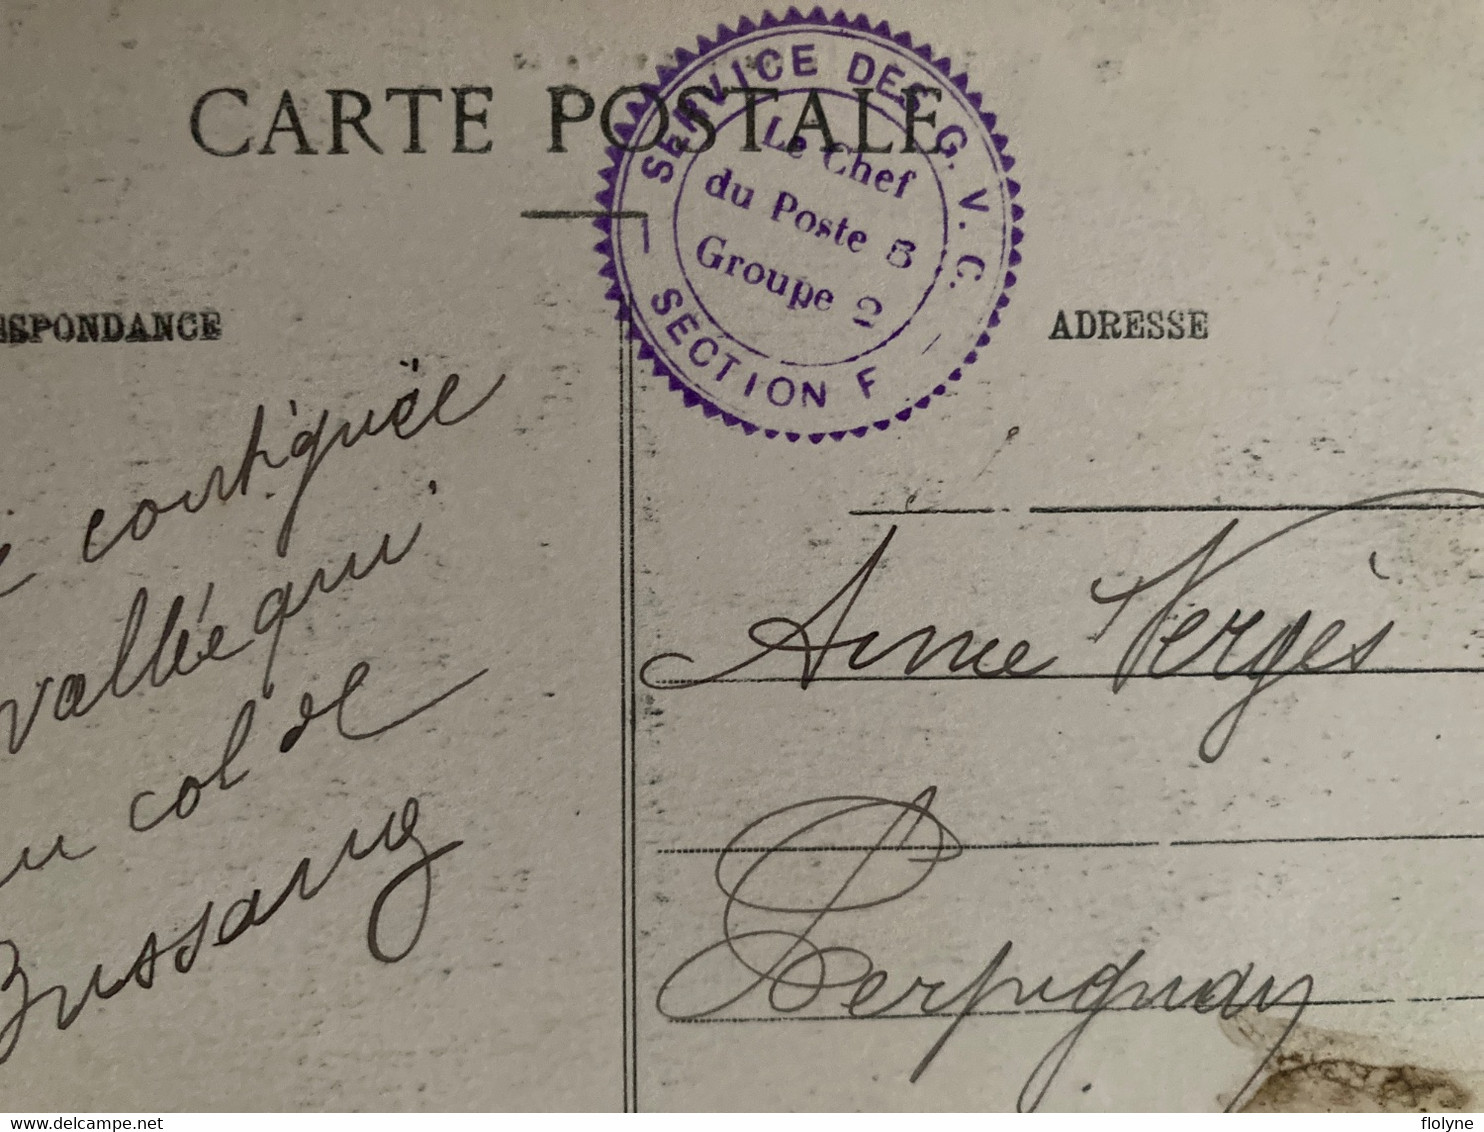 CARTE POSTALE
SERVICE DES G. V. C.
Le Chef
du Poste B
Groupe 2
SECTION F
ESPONDANCE
ADRESSE
vallée qui
col de
Bussang
Aimée Vergès
Perpignan
www.delcampe.net
flolyne